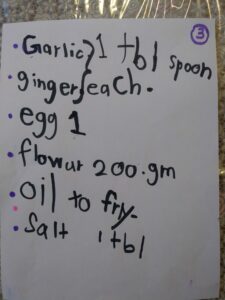 3
• Garlic } 1 tbl spoon
• ginger } each.
• egg 1
• flowur 200.gm
• oil to fry.
• Salt 1 tbl